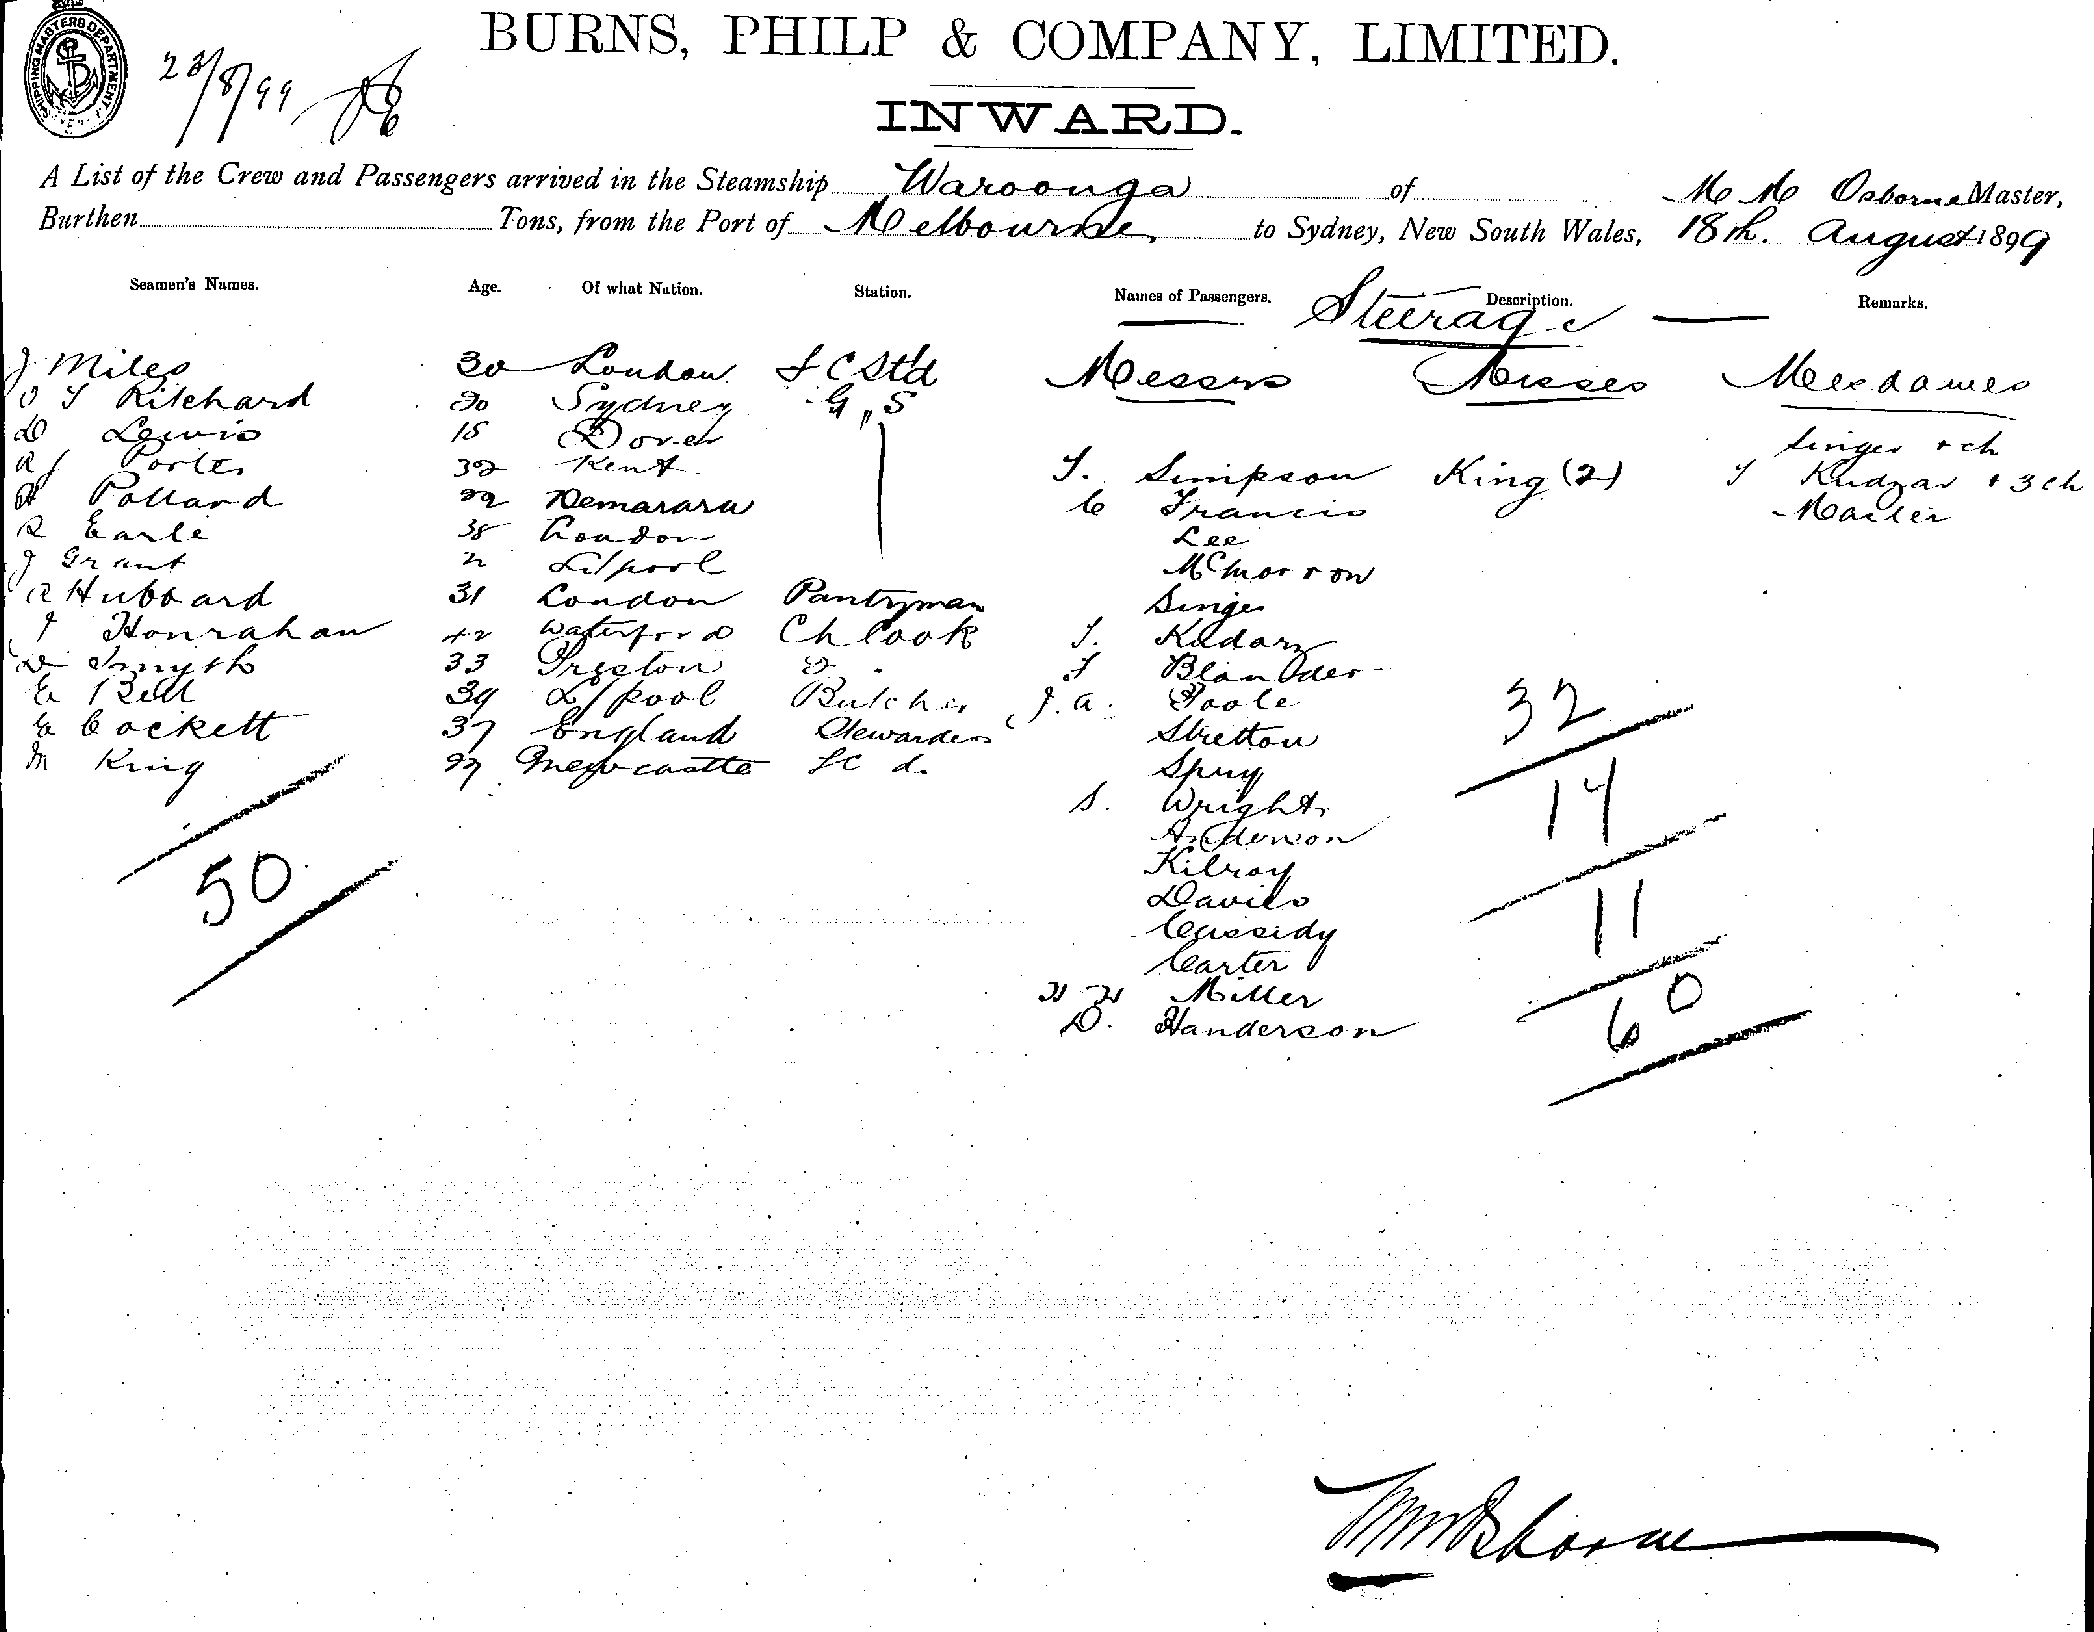 SHIPPING MASTERS DEPARTMENT
23/8/99
BURNS, PHILP & COMPANY, LIMITED.
INWARD.
A List of the Crew and Passengers arrived in the Steamship Waroonga of M M Osborne Master,
Burthen Tons, from the Port of Melbourne to Sydney, New South Wales, 18th. August 1899
Seamen's Names. Age. Of what Nation. Station. Names of Passengers. Description. Remarks.
Steerage
J Miles 30 London Std
Ritchard 20 Sydney G " S
D Lewis 18 Dover
Porter 32 Kent
Pollard 22 Demarara
R Earle 38 London
J Grant 21 L'pool
Hubbard 31 London Pantryman
Honrahan 42 Waterford Ch Cook
Smyth 33 Preston 2 "
E Bell 39 L'pool Butcher
E Cockett 37 England Stewardess
M King 27 Newcastle
50
Messrs Misses Mesdames
Singer + ch
Simpson King (2) + 3 ch
C Francis
Lee
McMorron
Singer
J. A. Poole
Stretton
Spry
S. Wright
Anderson
Kilroy
Davies
Cassidy
Carter
Miller
D. Handerson
32
14
11
60